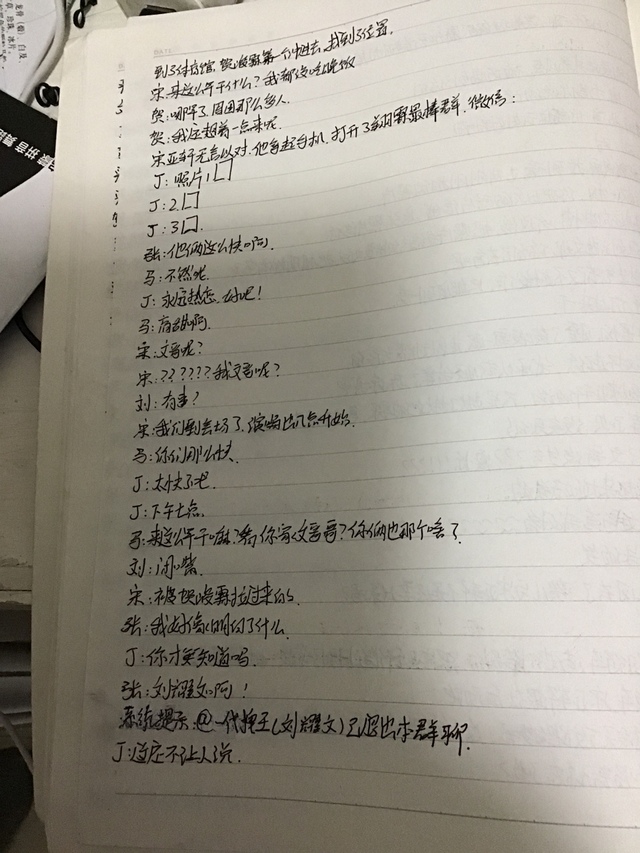 到了体育馆，贺峻霖第一个冲进去，找到了位置。
宋：来这么早干什么？我都没吃晚饭
贺：哪早了，周围那么多人。
贺：我还想着早一点来呢。
宋亚轩无言以对，他拿起手机，打开了翔霖最棒群，微信：
J：照片1囗
J：2.囗
J：3囗.
张：他俩这么快啊.
马：不然呢.
J：永远热恋，好吧！
马：甜啊.
宋：文哥呢？
宋：??????我文哥呢？
刘：有事？
宋：我们到去场了，演唱会几点开始.
马：你们那么快.
J：太快了吧.
J：下午七点.
马：来这么早干嘛？你文哥哥？你俩也那个啥了.
刘：闭嘴.
宋：被贺峻霖拉过来的.
张：我好像明白了什么.
J：你才知道吗.
张：刘耀文啊！
系统提示：@一代拽王(刘耀文)已退出本群聊.
J：这还不让人说.